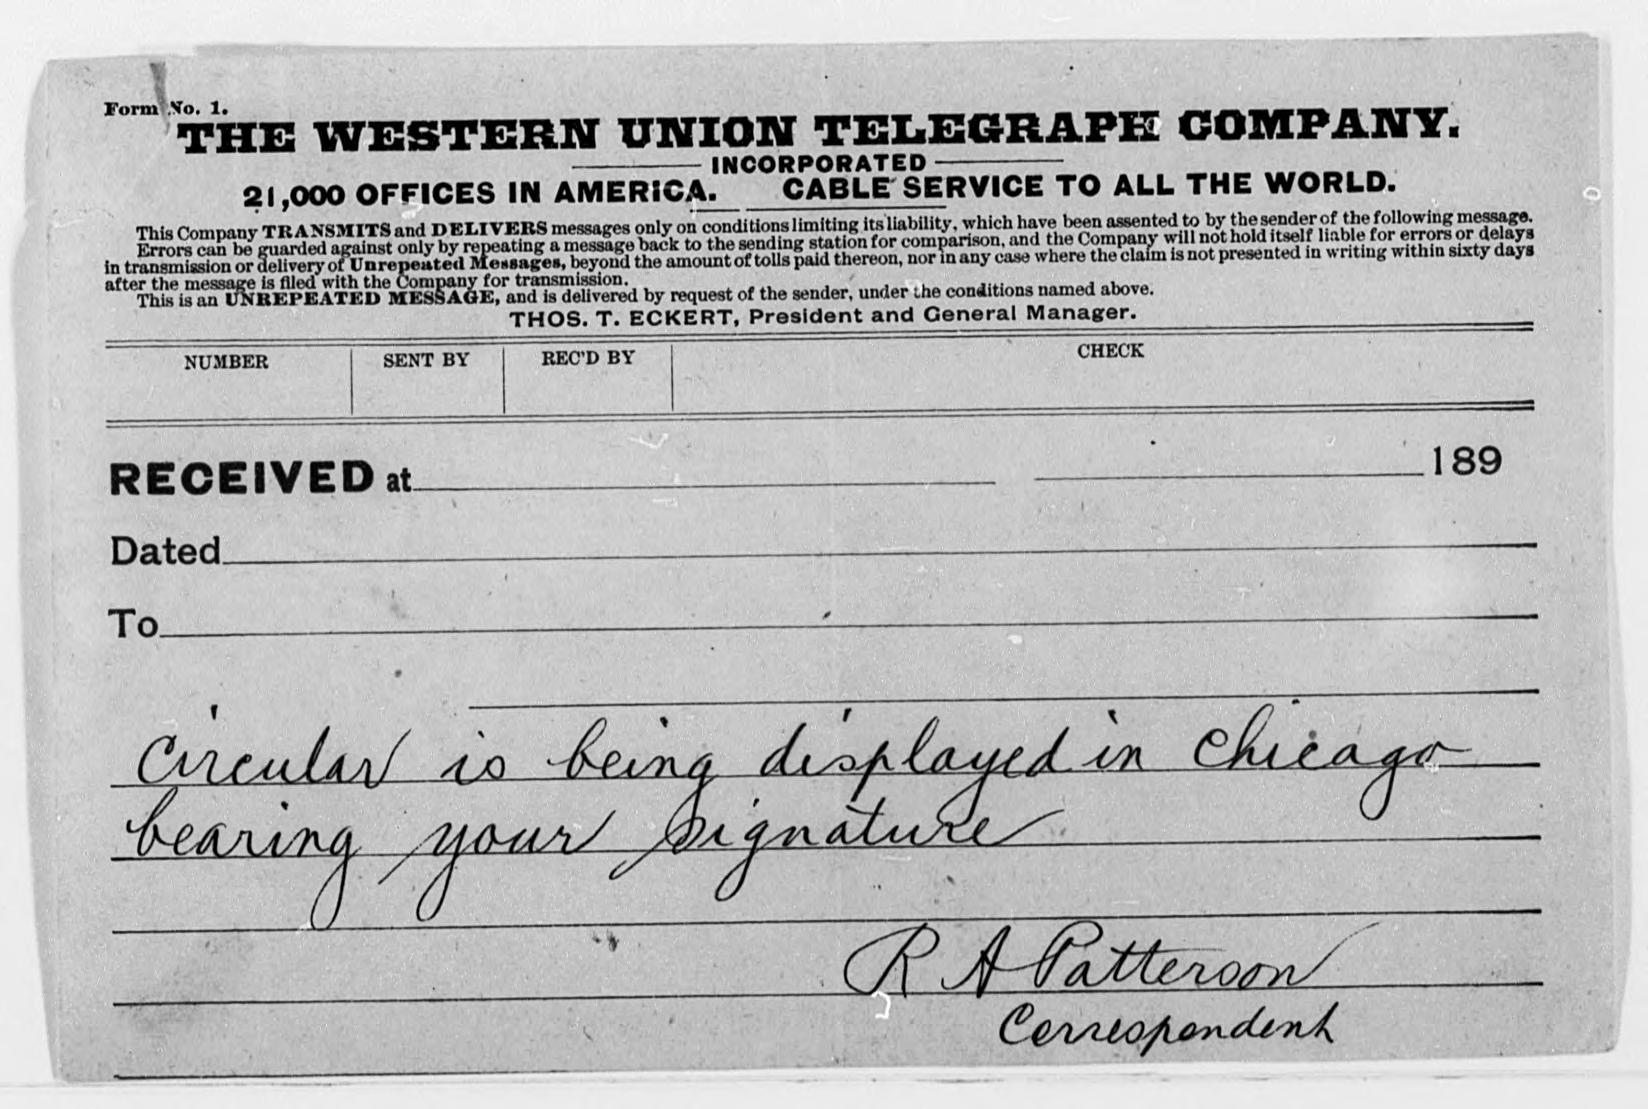 Form No. 1.
THE WESTERN UNION TELEGRAPH COMPANY.
INCORPORATED
21,000 OFFICES IN AMERICA. CABLE SERVICE TO ALL THE WORLD.
This Company TRANSMITS and DELIVERS messages only on conditions limiting its liability, which have been assented to by the sender of the following message.
Errors can be guarded against only by repeating a message back to the sending station for comparison, and the Company will not hold itself liable for errors or delays
in transmission or delivery of Unrepeated Messages, beyond the amount of tolls paid thereon, nor in any case where the claim is not presented in writing within sixty days
after the message is filed with the Company for transmission.
This is an UNREPEATED MESSAGE, and is delivered by request of the sender, under the conditions named above.
THOS. T. ECKERT, President and General Manager.
NUMBER SENT BY REC'D BY CHECK
RECEIVED at 189
Dated
To
Circular is being displayed in Chicago
bearing your signature
R A Patterson
Correspondent